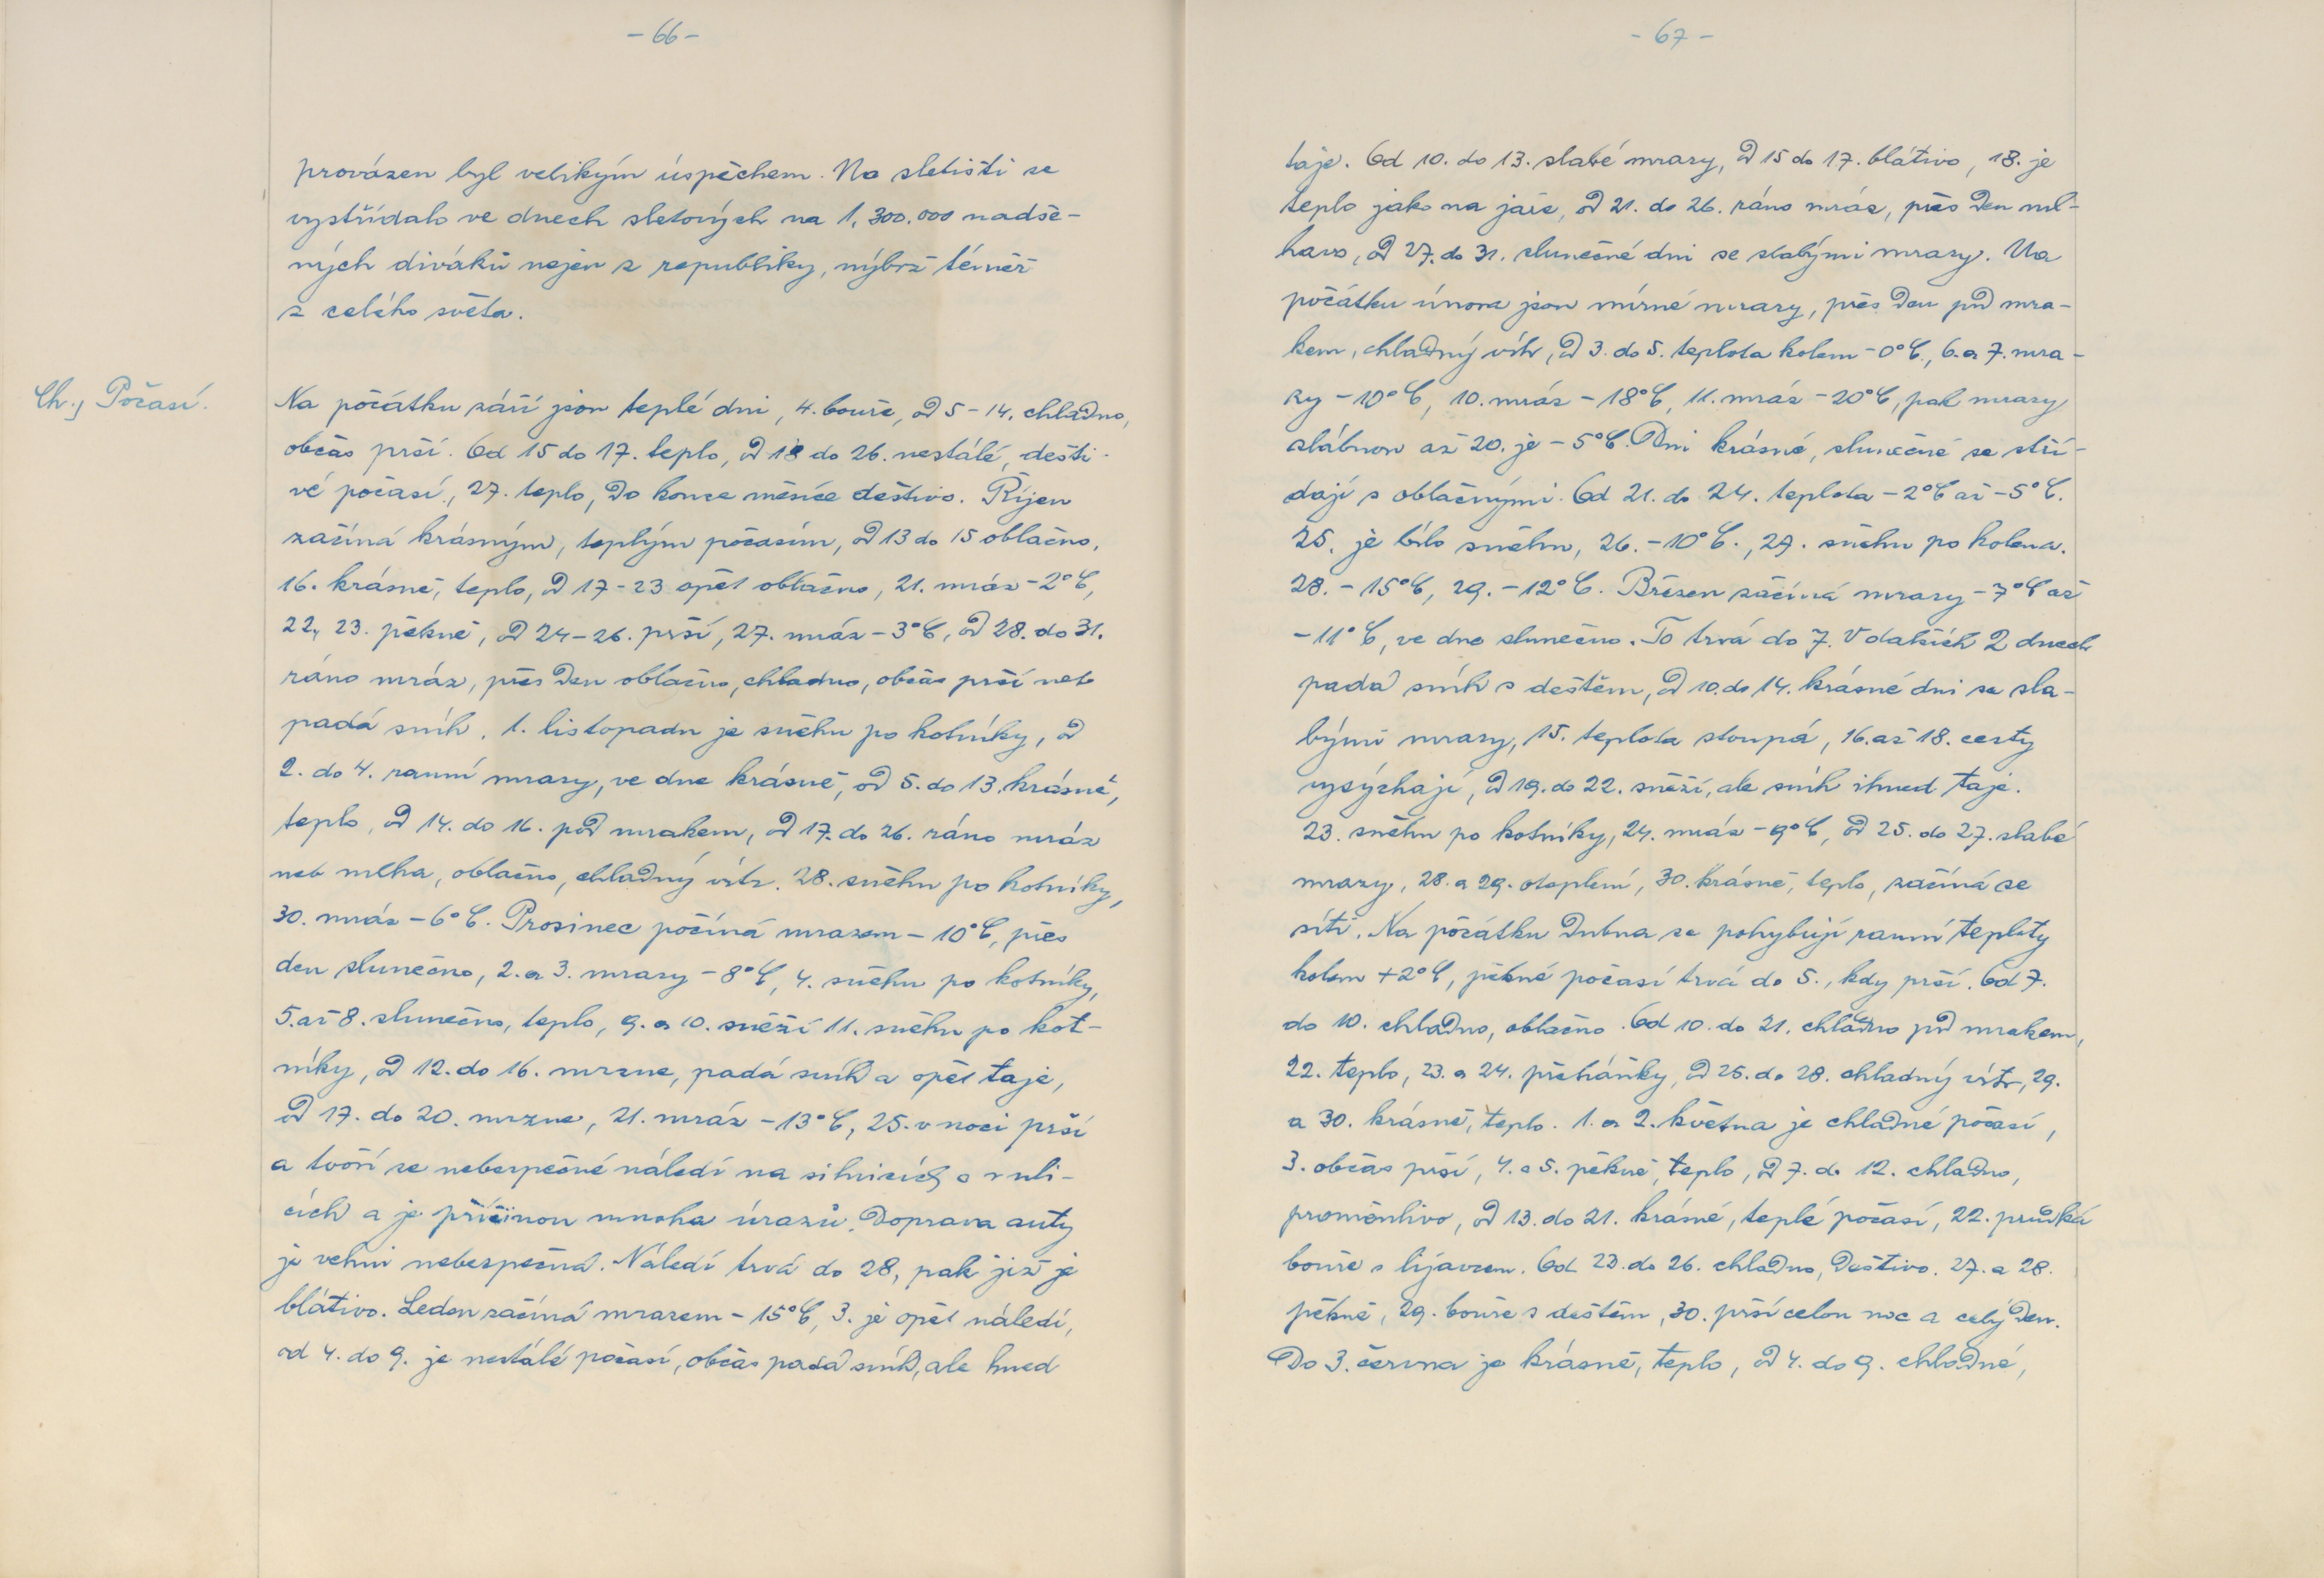 - 66 -
provázen byl velikým úspěchem. Na sletišti se
vystřídalo ve dnech sletových na 1,300.000 nadše-
ných diváků nejen z republiky, nýbrž téměř
z celého světa.
Ch., Počasí.
Na počátku září jsou teplé dni, 4. bouře, od 5-14. chladno,
občas prší. Od 15 do 17. teplo, od 18 do 26. nestálé, dešti-
vé počasí, 27. teplo, do konce měsíce deštivo. Říjen
začíná krásným, teplým počasím, od 13 do 15 oblačno,
16. krásně, teplo, od 17-23 opět oblačno, 21. mráz -2°C,
22., 23. pěkně, od 24-26. prší, 27. mráz -3°C, od 28. do 31.
ráno mráz, přes den oblačno, chladno, občas prší neb
padá sníh. 1. listopadu je sněhu po kotníky, od
2. do 4. ranní mrazy, ve dne krásně, od 5. do 13. krásně,
teplo, od 14. do 16. pod mrakem, od 17. do 26. ráno mráz
neb mlha, oblačno, chladný vítr. 28. sněhu po kotníky,
30. mráz -6°C. Prosinec počíná mrazem -10°C, přes
den slunečno, 2. a 3. mrazy -8°C, 4. sněhu po kotníky,
5. až 8. slunečno, teplo, 9. a 10. sněží 11. sněhu po kot-
níky, od 12. do 16. mrzne, padá sníh a opět taje,
od 17. do 20. mrzne, 21. mráz -13°C, 25. v noci prší
a tvoří se nebezpečné náledí na silnicích a v uli-
cích a je příčinou mnoha úrazů. Doprava auty
je velmi nebezpečná. Náledí trvá do 28, pak již je
blátivo. Leden začíná mrazem -15°C, 3. je opět náledí,
od 4. do 9. je nestálé počasí, občas padá sníh, ale hned
- 67 -
taje. Od 10. do 13. slabé mrazy, od 15 do 17. blátivo, 18. je
teplo jako na jaře, od 21. do 26. ráno mráz, přes den ml-
havo, od 27. do 31. slunečné dni se slabými mrazy. Na
počátku února jsou mírné mrazy, přes den pod mra-
kem, chladný vítr, od 3. do 5. teplota kolem -0°C, 6. a 7. mra-
zy -10°C, 10. mráz -18°C, 11. mráz -20°C, pak mrazy
slábnou až 20. je -5°C. Dni krásné, slunečné se stří-
dají s oblačnými. Od 21. do 24. teplota -2°C až -5°C.
25. je bílo sněhu, 26. -10°C., 27. sněhu po kolena.
28. -15°C, 29. -12°C. Březen začíná mrazy -7°C až
-11°C, ve dne slunečno. To trvá do 7. V dalších 2 dnech
padá sníh s deštěm, od 10. do 14. krásné dni se sla-
bými mrazy, 15. teplota stoupá, 16. až 18. cesty
vysýchají, od 19. do 22. sněží, ale sníh ihned taje.
23. sněhu po kotníky, 24. mráz -9°C, od 25. do 27. slabé
mrazy, 28. a 29. oteplení, 30. krásně, teplo, začíná se
síti. Na počátku dubna se pohybují ranní teploty
kolem +2°C, pěkné počasí trvá do 5., kdy prší. Od 7.
do 10. chladno, oblačno. Od 10. do 21. chladno pod mrakem,
22. teplo, 23. a 24. přeháňky, od 25. do 28. chladný vítr, 29.
a 30. krásně, teplo. 1. a 2. května je chladné počasí,
3. občas prší, 4. a 5. pěkně, teplo, od 7. do 12. chladno,
proměnlivo, od 13. do 21. krásné, teplé počasí, 22. prudká
bouře s lijavcem. Od 23. do 26. chladno, deštivo. 27. a 28.
pěkně, 29. bouře s deštěm, 30. prší celou noc a celý den.
Do 3. června je krásně, teplo, od 4. do 9. chladné,